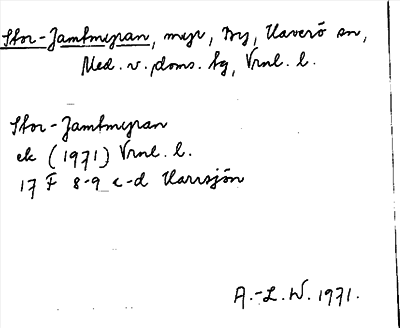 Stor-Jamtmyran, myr, By, Haverö sn,
Med. v. doms. tg, Vrnl. l.
Stor-Jamtmyran
ek (1971) Vrnl. l.
17 F 8-9 c-d Harrsjön
A.-L. W. 1971.